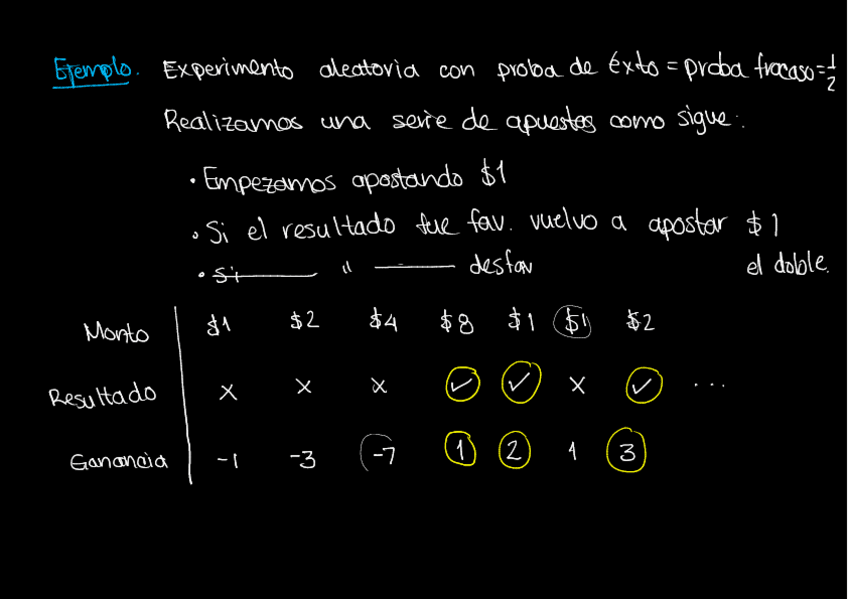 Ejemplo. Experimento aleatorio con proba de éxto = proba fracaso = 1/2
Realizamos una serie de apuestas como sigue:
• Empezamos apostando $1
• Si el resultado fue fav. vuelvo a apostar $1
• Si ——— " ——— desfav el doble.
Monto $1 $2 $4 $8 $1 $1 $2
Resultado x x x ✓ ✓ x ✓ ...
Ganancia -1 -3 -7 1 2 1 3